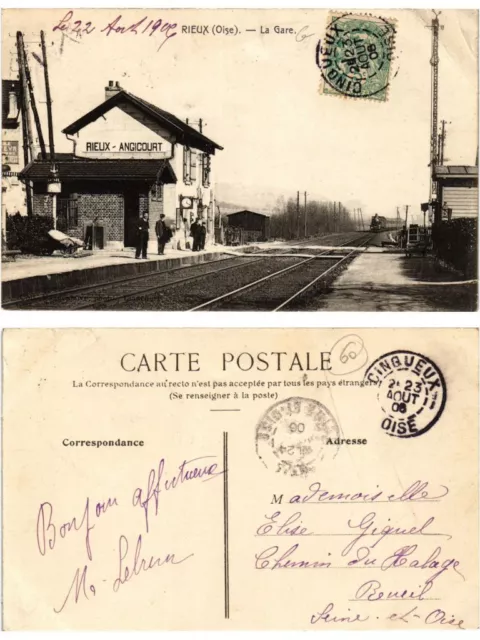 Le 22 Août 1906
RIEUX (Oise). — La Gare.
CINQUEUX
2E 23
AOUT
06
OISE
RIEUX - ANGICOURT
CARTE POSTALE
La Correspondance au recto n'est pas acceptée par tous les pays étrangers
(Se renseigner à la poste)
60
CINQUEUX
2E 23
AOUT
06
OISE
Correspondance
Adresse
Bonjour affectueux
M. Lebrun
Mademoiselle
Elise Giquel
Chemin du Halage
Rueil
Seine-et-Oise